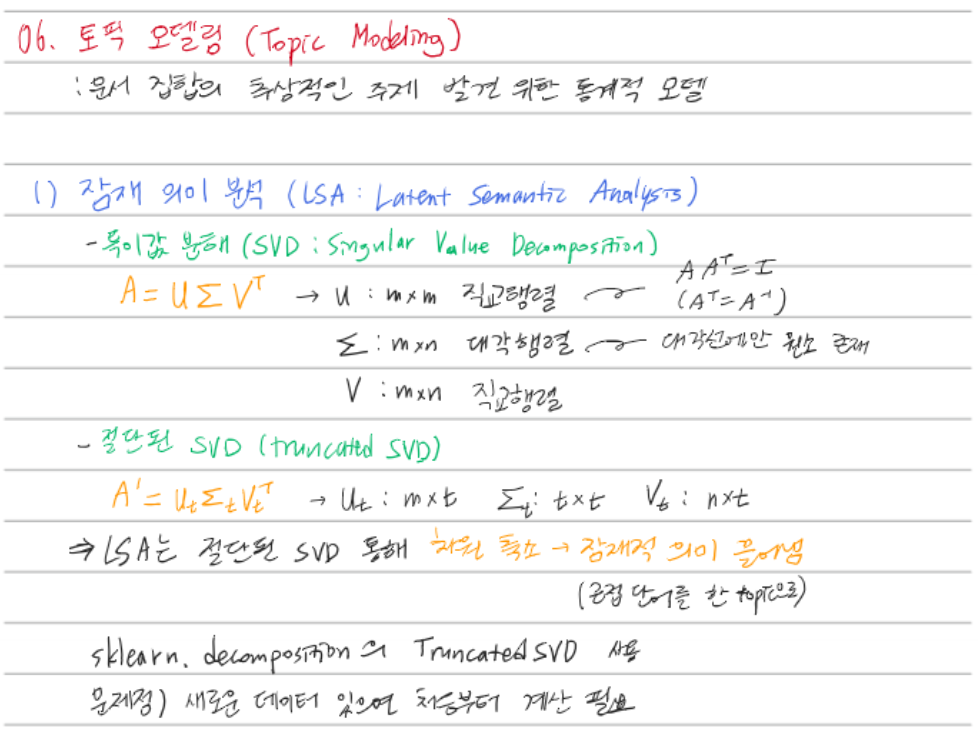 06. 토픽 모델링 (Topic Modeling)
: 문서 집합의 추상적인 주제 발견 위한 통계적 모델
1) 잠재 의미 분석 (LSA : Latent Semantic Analysis)
- 특이값 분해 (SVD : Singular Value Decomposition)
A = U Σ Vᵀ → U : m×m 직교행렬 A Aᵀ = I
(Aᵀ = A⁻¹)
Σ : m×n 대각행렬 대각선에만 원소 존재
V : m×n 직교행렬
- 절단된 SVD (truncated SVD)
A' = Uₜ Σₜ Vₜᵀ → Uₜ : m×t Σₜ : t×t Vₜ : n×t
⇒ LSA는 절단된 SVD 통해 차원 축소 → 잠재적 의미 끌어냄
(근접 단어를 한 topic으로)
sklearn. decomposition의 TruncatedSVD 사용
문제점) 새로운 데이터 있으면 처음부터 계산 필요